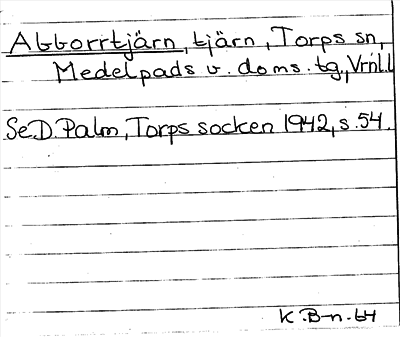 Abborrtjärn, tjärn, Torps sn,
Medelpads v. doms. tg, Vrnl.l
Se D. Palm, Torps socken 1942, s. 54.
K. B-n. 64